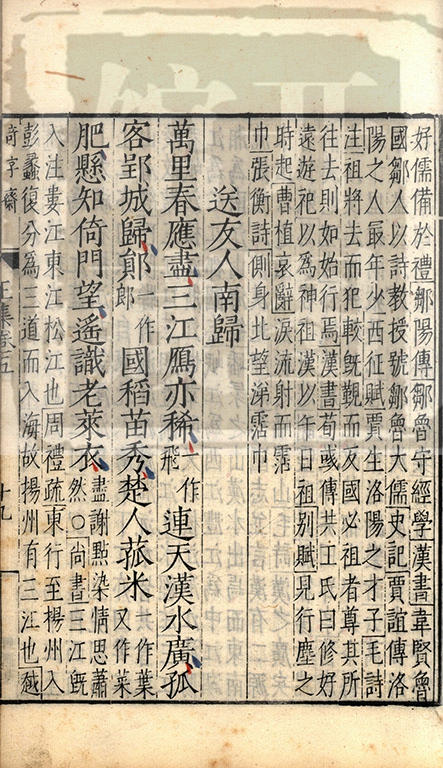 好儒備於禮鄒陽傳鄒魯守經學漢書韋賢魯
國鄒人以詩教授號鄒魯大儒史記賈誼傳洛
陽之人最年少西征賦賈生洛陽之才子毛詩
注祖將去而犯軷既觀而反國必祖者尊其所
往去則如始行焉漢書荀彧傳共工氏曰修好
遠遊祀以為神祖漢以午日祖別賦見行塵之
時起曹植哀辭淚流射而霑
巾張衡詩側身北望涕霑巾
送友人南歸
萬里春應盡三江鴈亦稀一作飛連天漢水廣孤
客郢城歸郎一作郎國稻苗秀楚人菰米一作葉又作菜
肥懸知倚門望遙識老萊衣盡謝點染情思蕭然○尚書三江既
入注婁江東江松江也周禮疏東行至揚州入
彭蠡復分為三道而入海故揚州有三江也越
奇字齋
王集卷五
十九